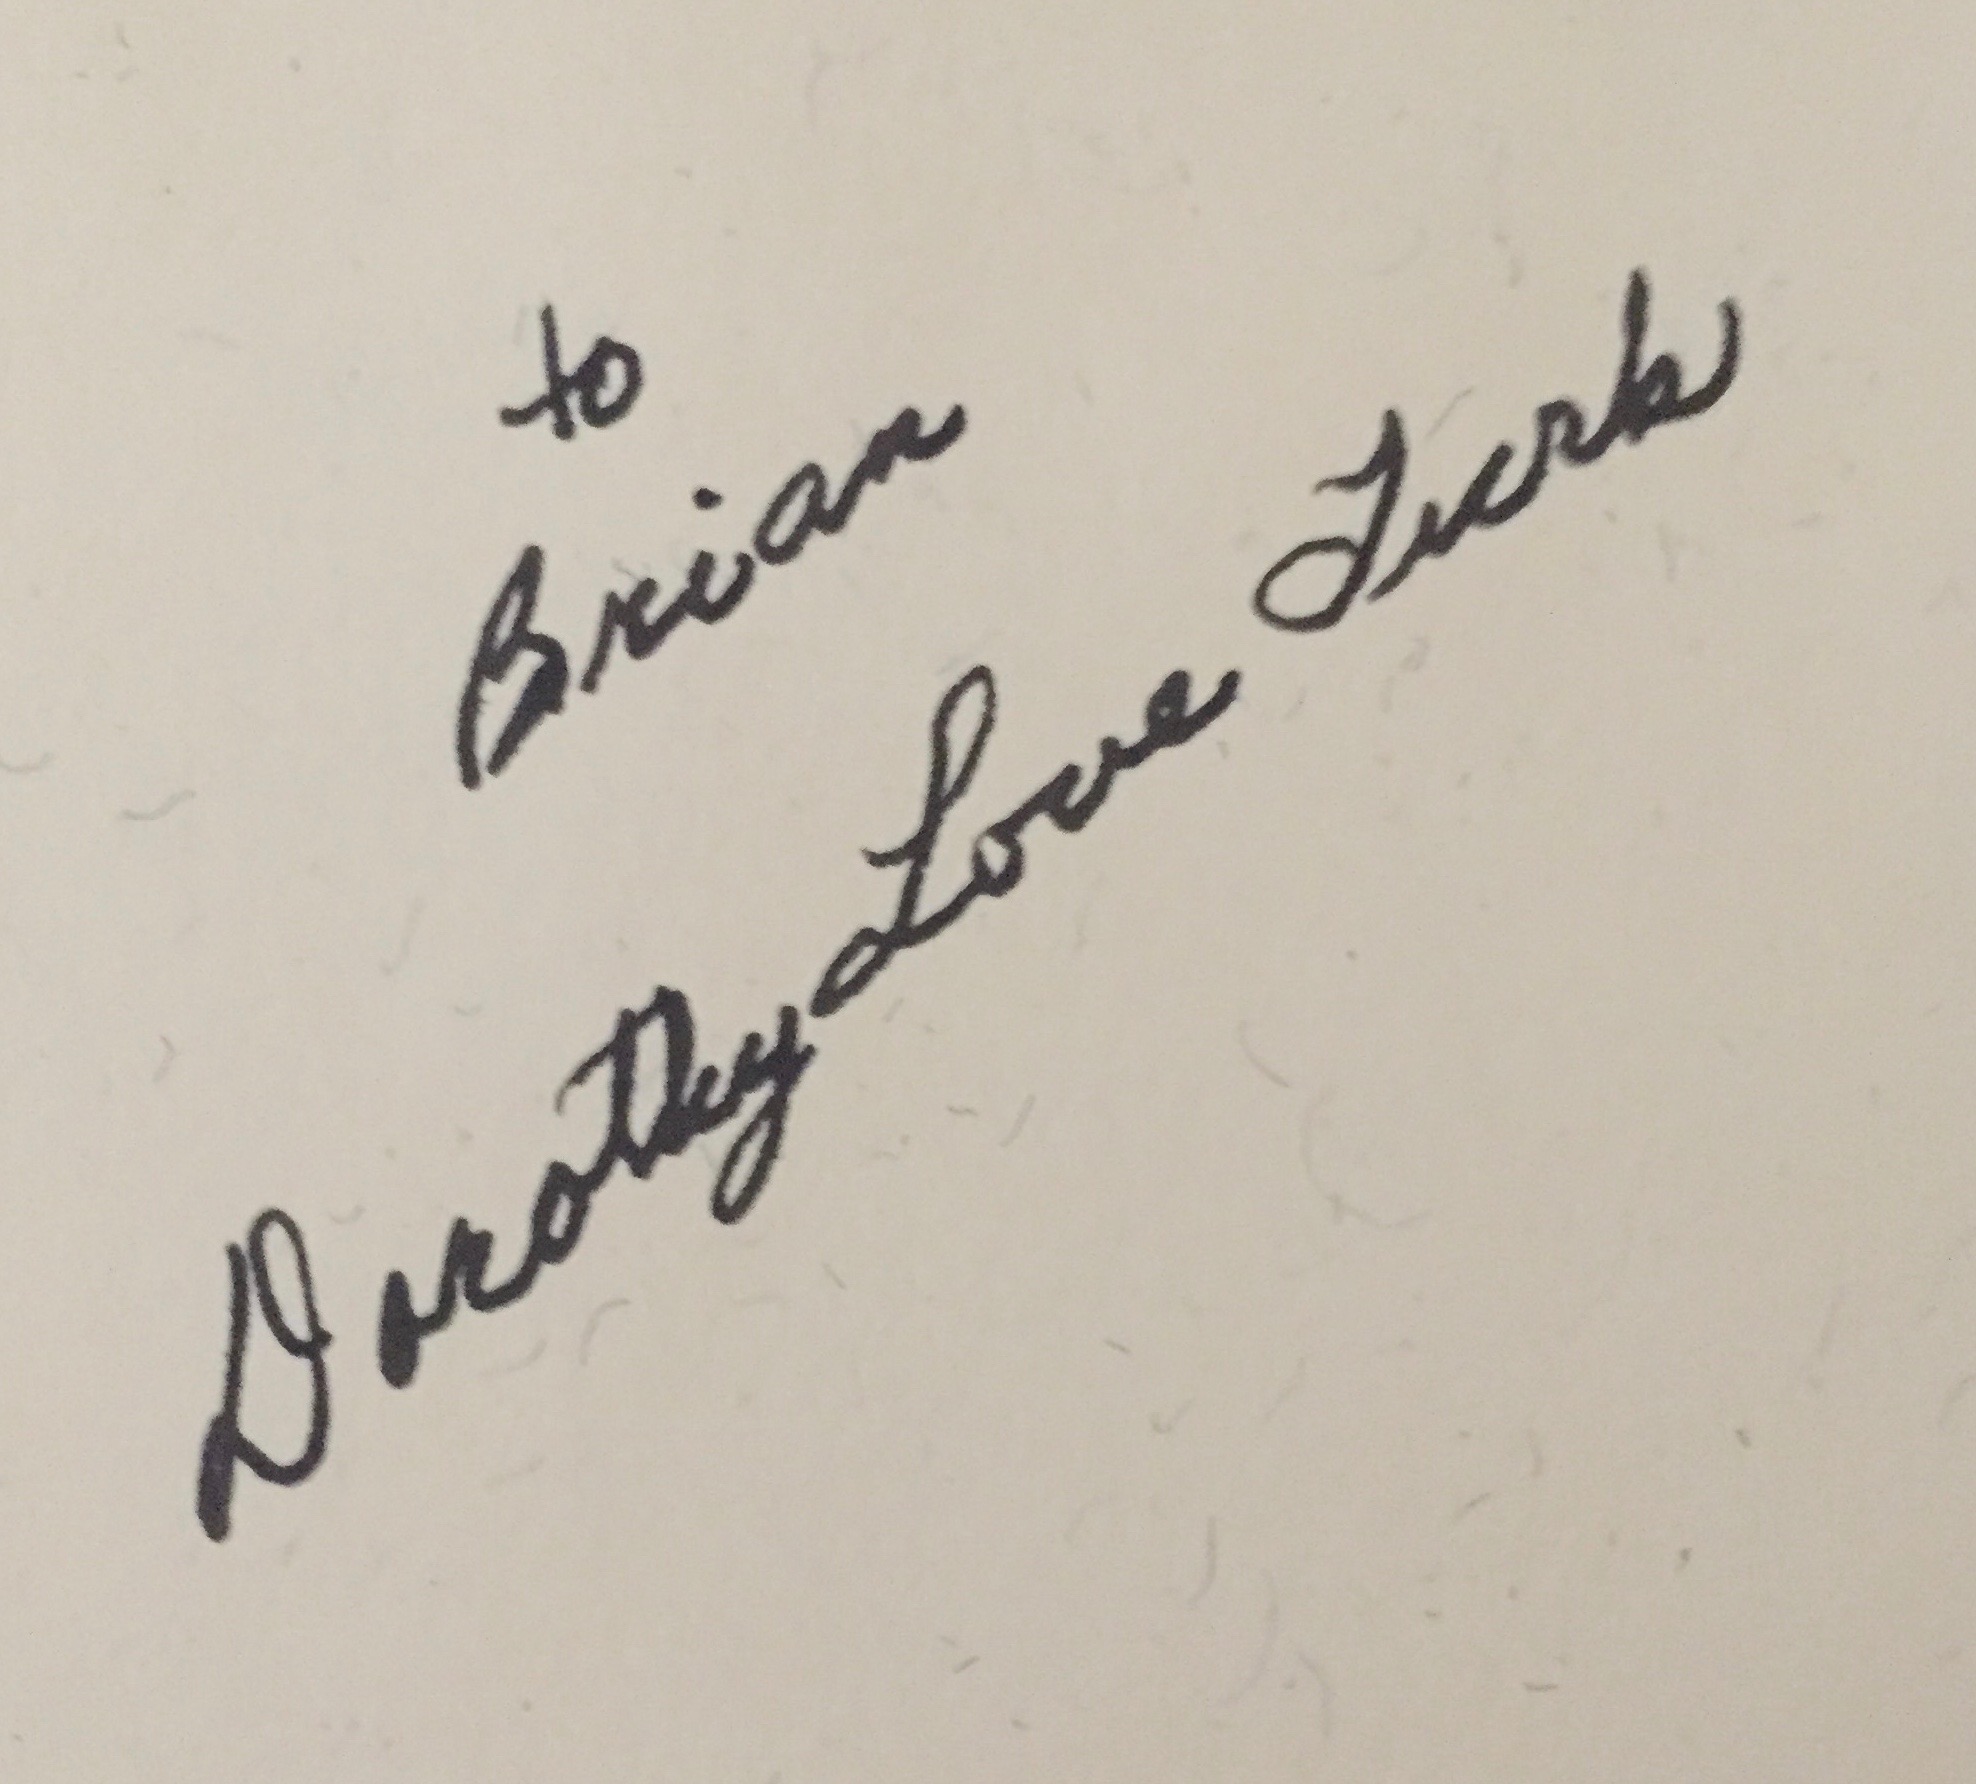 to
Brian
Dorothy Love Turk